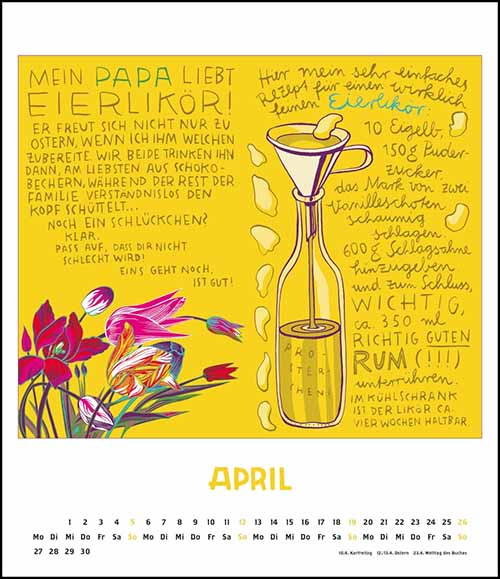 MEIN PAPA LIEBT
EIERLIKÖR!
ER FREUT SICH NICHT NUR ZU
OSTERN, WENN ICH IHM WELCHEN
ZUBEREITE. WIR BEIDE TRINKEN IHN
DANN, AM LIEBSTEN AUS SCHOKO-
BECHERN, WÄHREND DER REST DER
FAMILIE VERSTÄNDNISLOS DEN
KOPF SCHÜTTELT...
NOCH EIN SCHLÜCKCHEN?
KLAR.
PASS AUF, DASS DIR NICHT
SCHLECHT WIRD!
EINS GEHT NOCH,
IST GUT!
Hier mein sehr einfaches
Rezept für einen wirklich
feinen Eierlikör:
10 Eigelb,
150g Puder-
zucker,
das Mark von zwei
Vanilleschoten
schaumig
schlagen.
600 g Schlagsahne
hinzugeben
und zum Schluss,
WICHTIG,
ca. 350 ml
RICHTIG GUTEN
RUM (!!!)
unterrühren.
IM KÜHLSCHRANK
IST DER LIKÖR CA.
VIER WOCHEN HALTBAR.
PRO
STER
CHEN!
APRIL
1 2 3 4 5 6 7 8 9 10 11 12 13 14 15 16 17 18 19 20 21 22 23 24 25 26
Mo Di Mi Do Fr Sa So Mo Di Mi Do Fr Sa So Mo Di Mi Do Fr Sa So Mo Di Mi Do Fr Sa So
27 28 29 30
10.4. Karfreitag 12./13.4. Ostern 23.4. Welttag des Buches